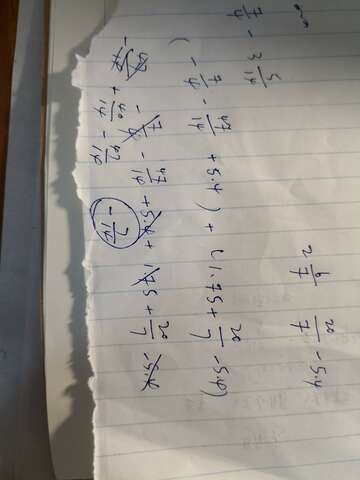 7/4 - 3 5/14    2 6/7    20/7 - 5.4
( - 7/4 - 47/14 + 5.4 ) + ( 1.75 + 20/7 - 5.4)
- 7/4 - 47/14 + 5.4 + 1.75 + 20/7 - 5.4
- 47/14 + 40/14 - 47/14    - 7/14